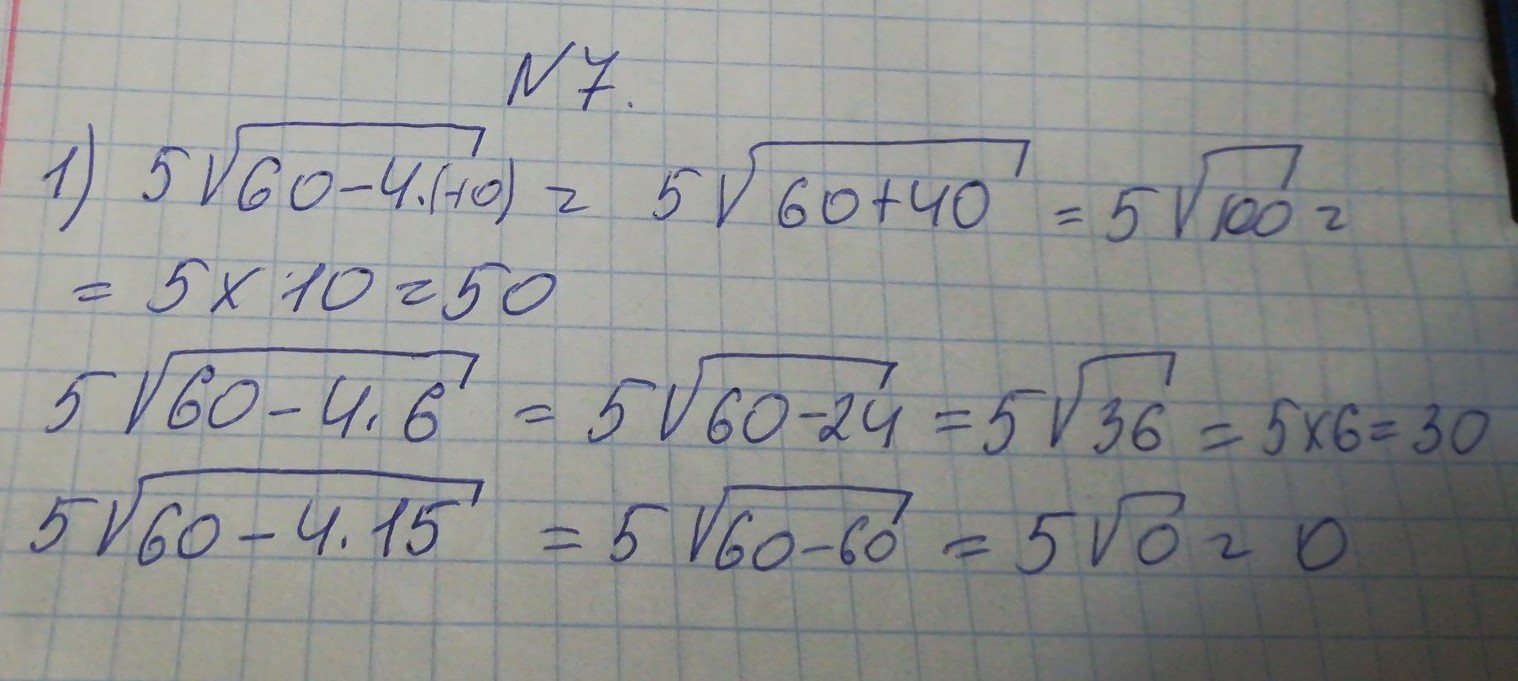 N7.
1) 5√60-4.(-10) = 5√60+40 = 5√100 =
= 5 x 10 = 50
5√60-4.6 = 5√60-24 = 5√36 = 5x6=30
5√60-4.15 = 5√60-60 = 5√0 = 0